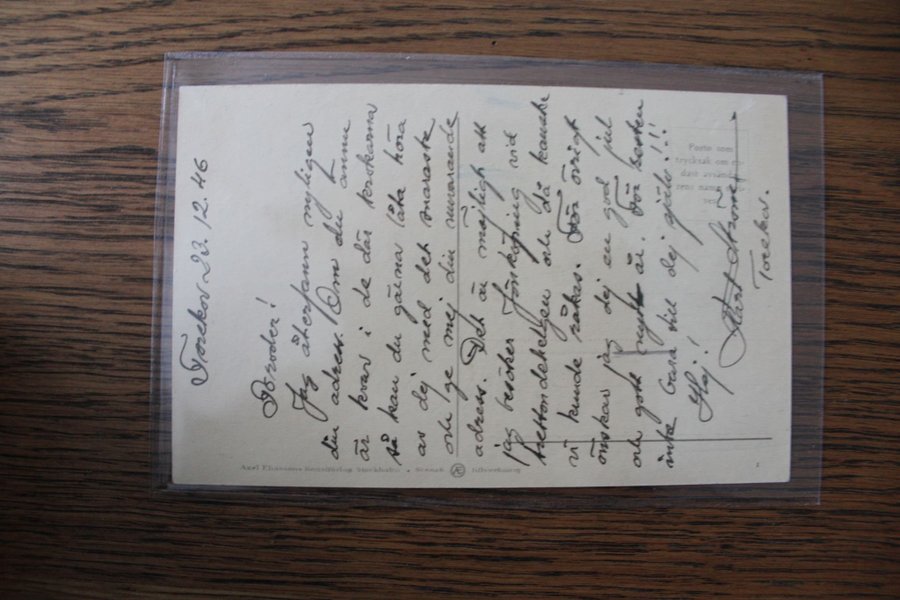 Torekov 23. 12. 46
Broder!
Jag återfann nyligen
din adress. Om du ännu
är kvar i de där krokarna
så kan du gärna låta höra
av dej med det snaraste
och ge mej din nuvarande
adress. Det är möjligt att
jag besöker Jönköping vid
trettondehelgen och då kanske
vi kunde råkas. För övrigt
önskar jag dej en god jul
och gott nytt år. För
inte till dej själv!!!
Hej!
Torekov.
Porto som
trycksak om en-
dast avsän-
rens namn
Axel Eliassons Konstförlag Stockholm • Svensk Æ tillverkning